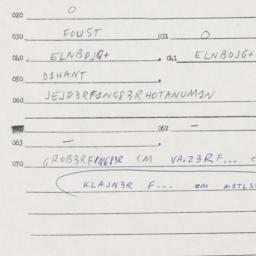 020 O
030 FOUST 031 O
040 ELNBOJG+ 041 ELNBOJG+
050 D1HANT
060 JEJD3RF1NG83RHOTANUM1N
062 —
063 —
070 GROB3RF1NG83R CM VA.Z3RF...
KLAJN3R F... cm